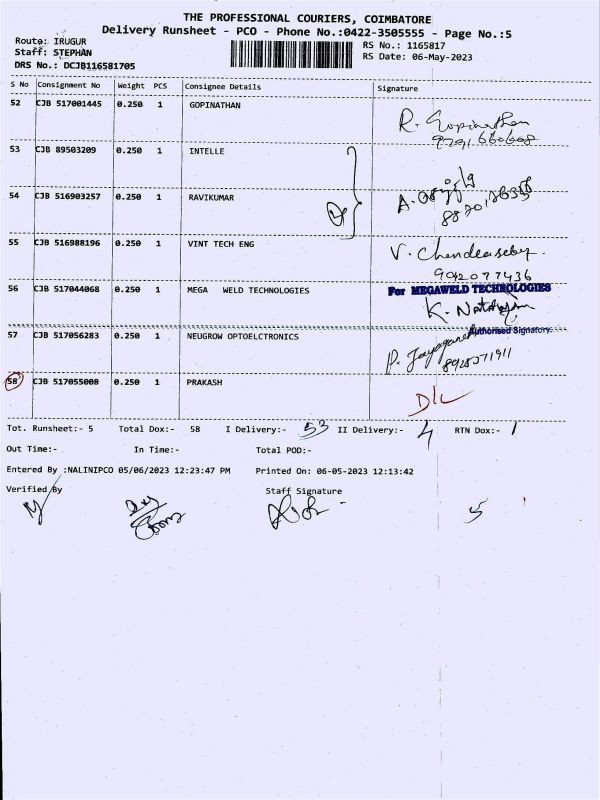 THE PROFESSIONAL COURIERS, COIMBATORE
Delivery Runsheet - PCO - Phone No.:0422-3505555 - Page No.:5
Route: IRUGUR
RS No.: 1165817
Staff: STEPHAN
RS Date: 06-May-2023
DRS No.: DCJB116581705
S No Consignment No Weight PCS Consignee Details Signature
52 CJB 517001445 0.250 1 GOPINATHAN
R. Gopinathan
53 CJB 89503209 0.250 1 INTELLE
54 CJB 516903257 0.250 1 RAVIKUMAR
A.
55 CJB 516988196 0.250 1 VINT TECH ENG
V. Chandrasekar
9042077436
56 CJB 517044068 0.250 1 MEGA WELD TECHNOLOGIES
For MEGAWELD TECHNOLOGIES
K. Natarajan
Authorised Signatory.
57 CJB 517056283 0.250 1 NEUGROW OPTOELCTRONICS
P.
58 CJB 517055008 0.250 1 PRAKASH
D/L
Tot. Runsheet:- 5 Total Dox:- 58 I Delivery:- 53 II Delivery:- 4 RTN Dox:- 1
Out Time:- In Time:- Total POD:-
Entered By :NALINIPCO 05/06/2023 12:23:47 PM Printed On: 06-05-2023 12:13:42
Verified By Staff Signature
5